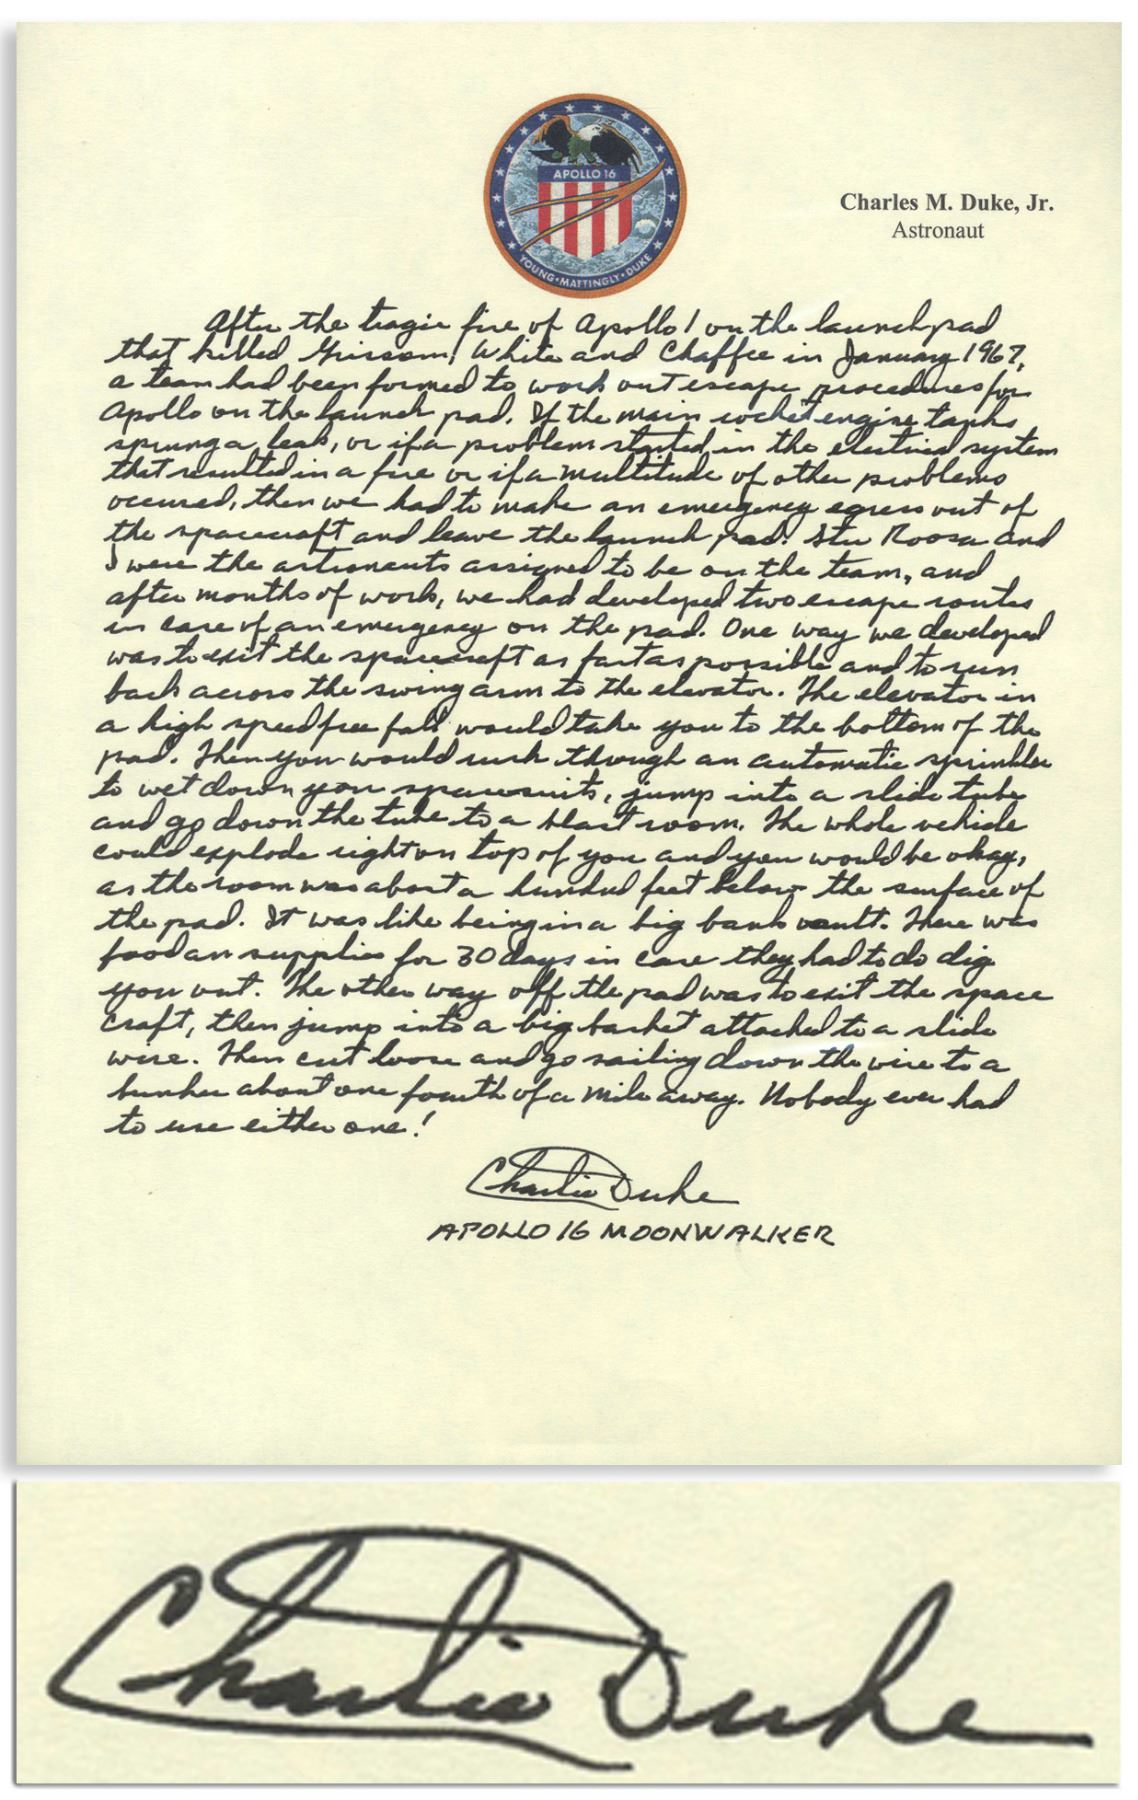 APOLLO 16
YOUNG • MATTINGLY • DUKE
Charles M. Duke, Jr.
Astronaut
After the tragic fire of Apollo 1 on the launch pad
that killed Grissom, White and Chaffee in January 1967,
a team had been formed to work out escape procedures for
Apollo on the launch pad. If the main rocket engine tanks
sprung a leak, or if a problem started in the electrical system
that resulted in a fire or if a multitude of other problems
occured, then we had to make an emergency egress out of
the spacecraft and leave the launch pad. Stu Roosa and
I were the astronauts assigned to be on the team, and
after months of work, we had developed two escape routes
in case of an emergency on the pad. One way we developed
was to exit the spacecraft as fast as possible and to run
back across the swing arm to the elevator. The elevator in
a high speed free fall would take you to the bottom of the
pad. Then you would rush through an automatic sprinkler
to wet down your spacesuits, jump into a slide tube
and go down the tube to a blast room. The whole vehicle
could explode right on top of you and you would be okay,
as the room was about a hundred feet below the surface of
the pad. It was like being in a big bank vault. There was
food an supplies for 30 days in case they had to do dig
you out. The other way off the pad was to exit the space
craft, then jump into a big basket attached to a slide
wire. Then cut loose and go sailing down the wire to a
bunker about one fourth of a mile away. Nobody ever had
to use either one!
Charlie Duke
APOLLO 16 MOONWALKER
Charlie Duke